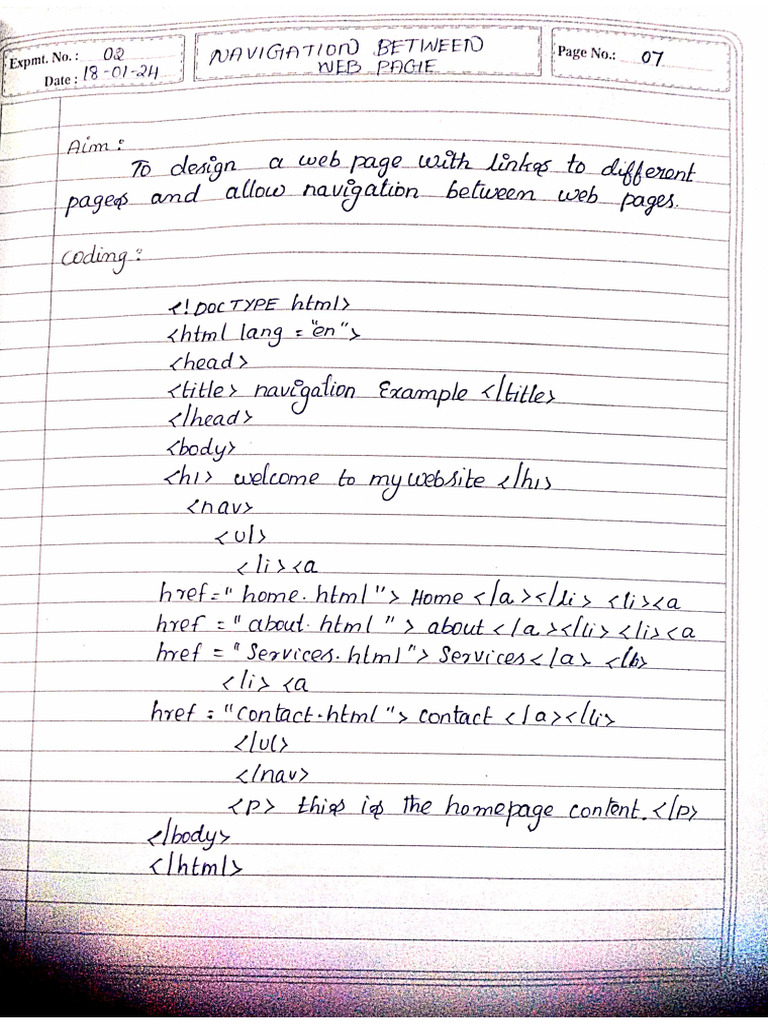 Expmt. No. : 02
Date : 18-01-24
NAVIGATION BETWEEN
WEB PAGE
Page No.: 07
Aim :
To design a web page with links to different
pages and allow navigation between web pages.
Coding :
<!DOCTYPE html>
<html lang = "en">
<head>
<title> navigation Example </title>
</head>
<body>
<h1> welcome to my website </h1>
<nav>
<ul>
<li><a
href="home.html"> Home </a></li> <li><a
href = "about.html"> about </a></li> <li><a
href = "Services.html"> Services</a> </li>
<li> <a
href = "Contact.html"> contact </a></li>
</ul>
</nav>
<p> this is the homepage content.</p>
</body>
</html>